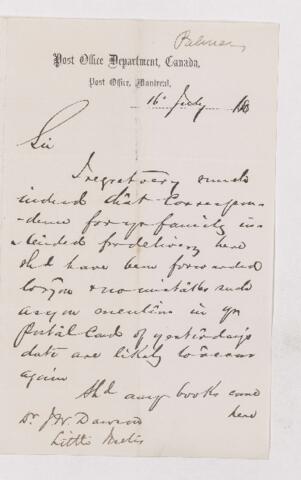 Palmer
Post Office Department, Canada,
Post Office, Montreal,
16 July 18
Sir
I regret very much
indeed that correspon-
-dence for yr family in-
-tended for delivery here
shd have been forwarded
to you & no mistakes such
as you mention in yr
Postal Card of yesterday's
date are likely to occur
again
Shd any books come
here
Dr. J. W. Dawson
Little Metis